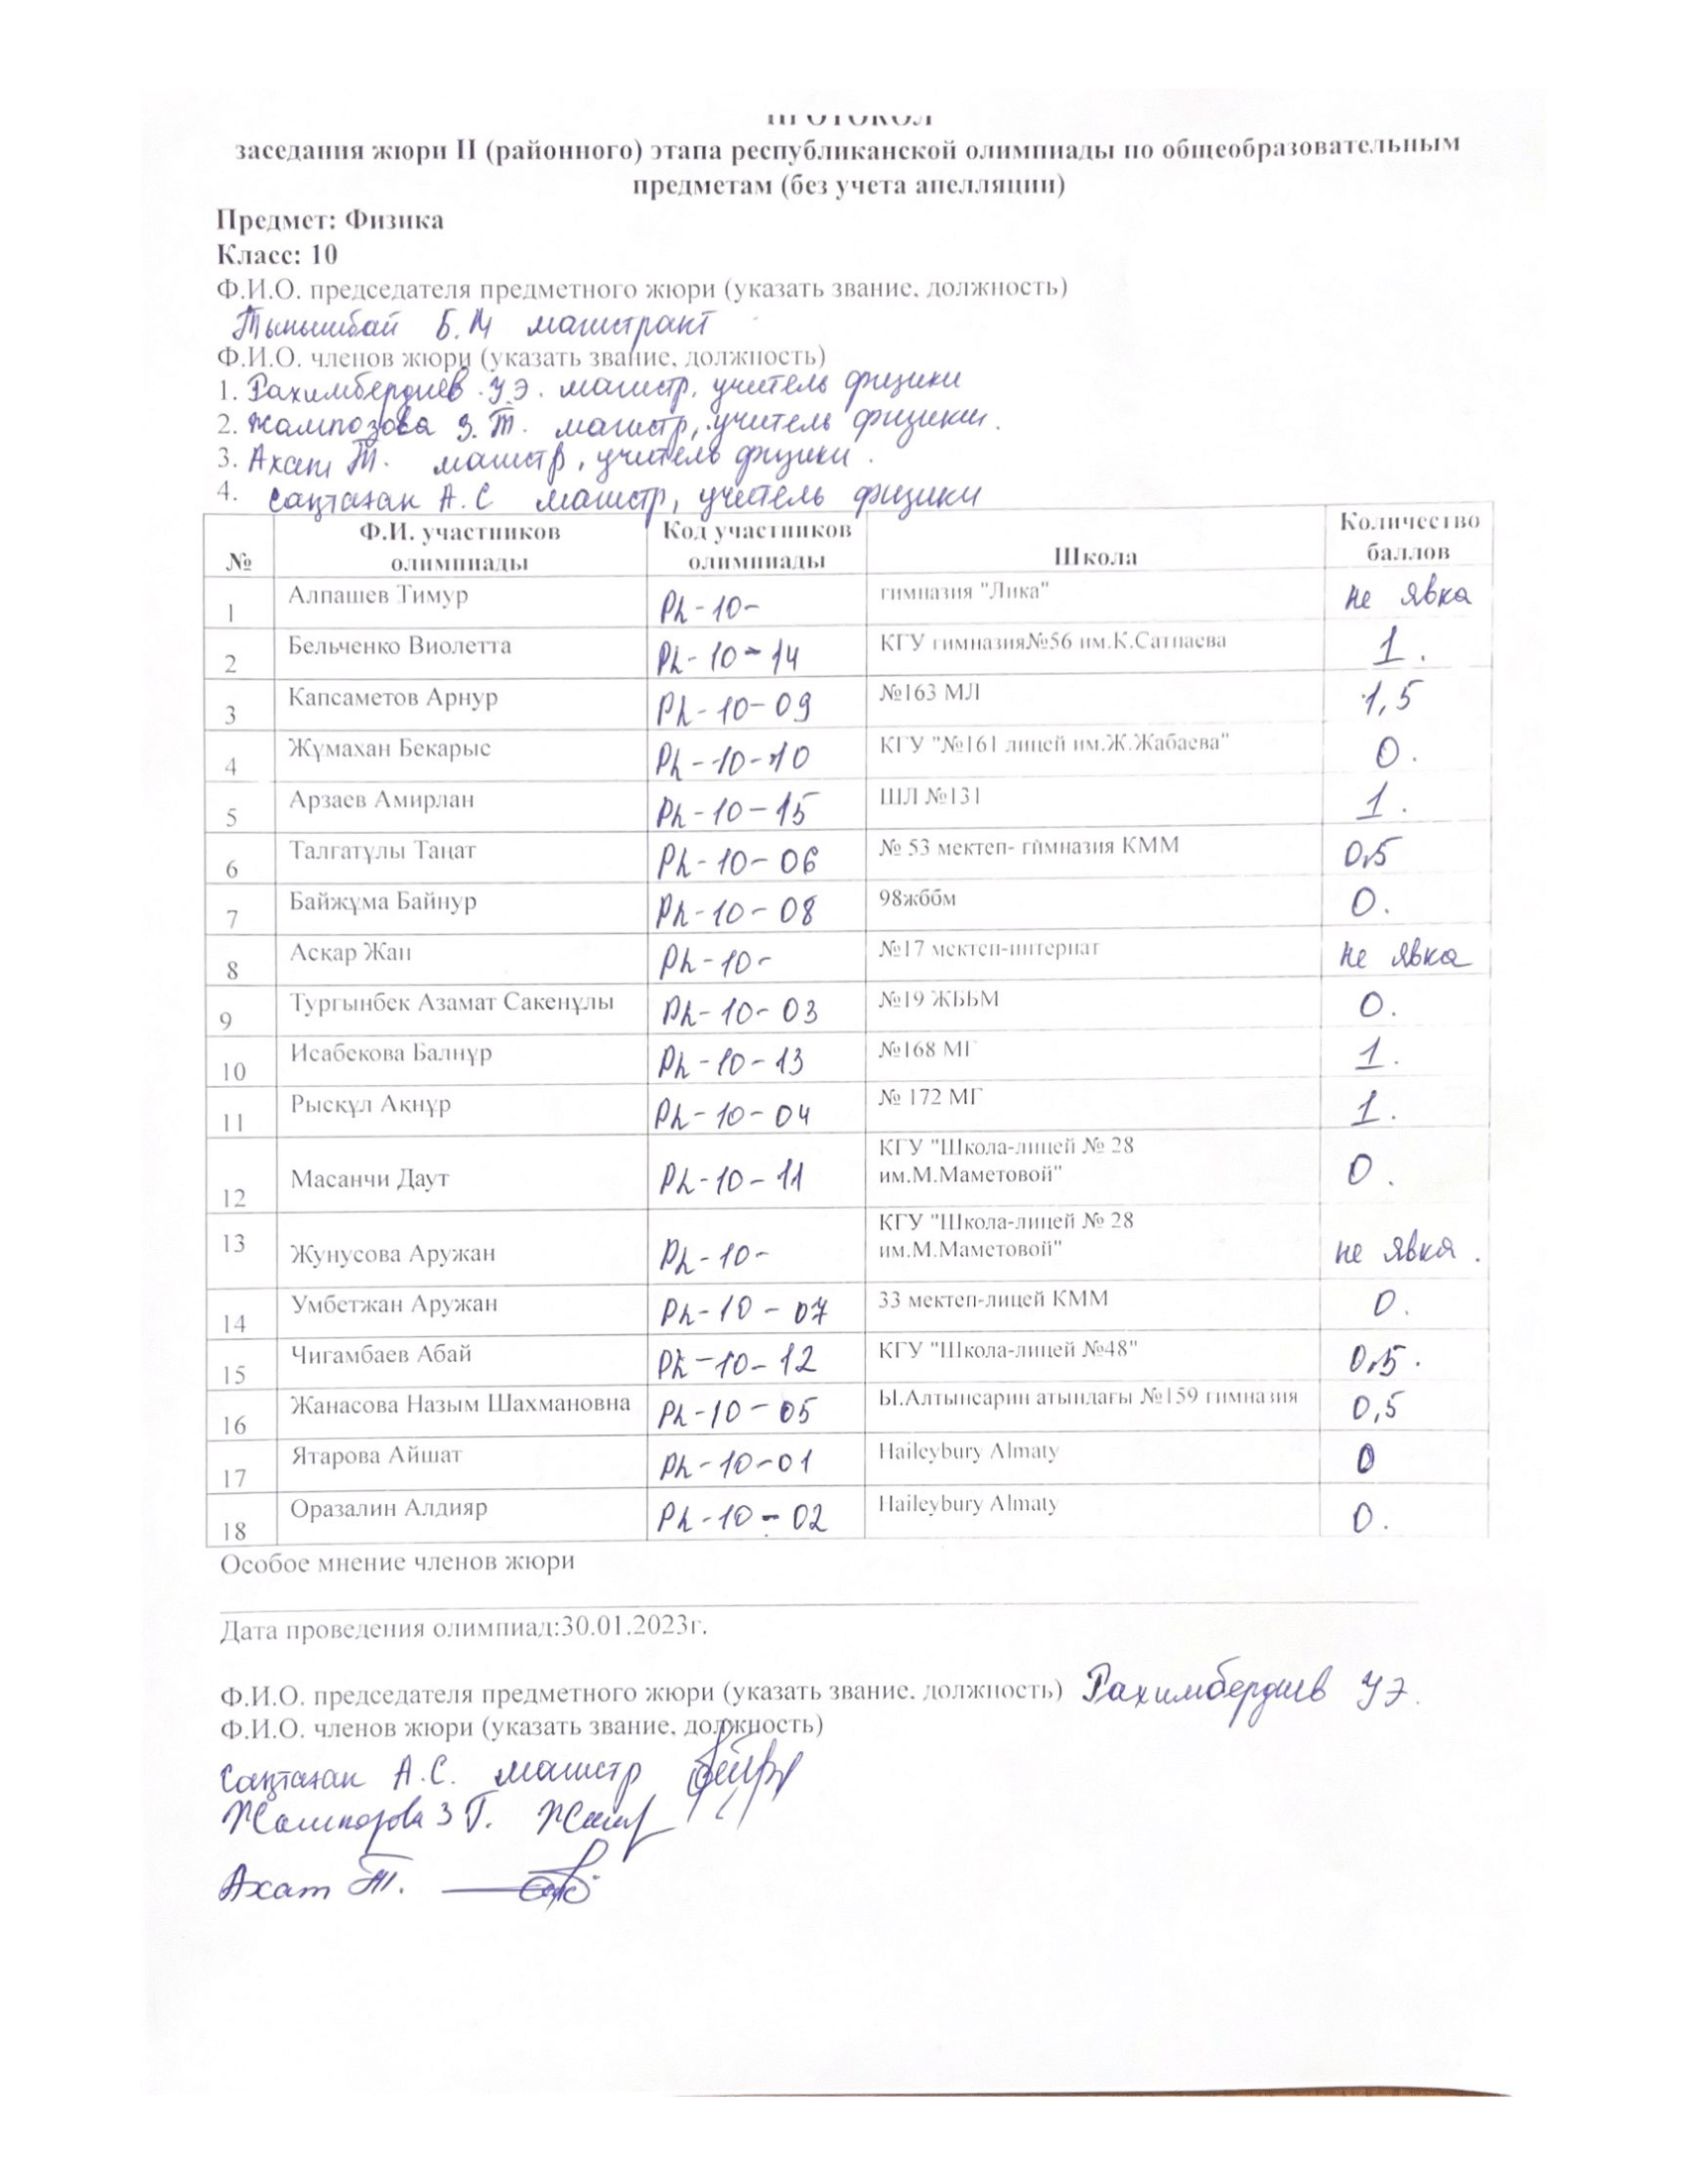 ПРОТОКОЛ
заседания жюри II (районного) этапа республиканской олимпиады по общеобразовательным
предметам (без учета апелляции)
Предмет: Физика
Класс: 10
Ф.И.О. председателя предметного жюри (указать звание, должность)
Тынышбай Б.М магистрант
Ф.И.О. членов жюри (указать звание, должность)
1. Рахимбердиев У.Э. магистр, учитель физики
2. Жампозова З.Т. магистр, учитель физики.
3. Ахат Т. магистр, учитель физики.
4. Саңтазан А.С магистр, учитель физики
№ Ф.И. участников олимпиады Код участников олимпиады Школа Количество баллов
1 Алпашев Тимур Ph-10- гимназия "Лика" не явка
2 Бельченко Виолетта Ph-10-14 КГУ гимназия№56 им.К.Сатпаева 1.
3 Капсаметов Арнур Ph-10-09 №163 МЛ 1,5
4 Жұмахан Бекарыс Ph-10-10 КГУ "№161 лицей им.Ж.Жабаева" 0.
5 Арзаев Амирлан Ph-10-15 ШЛ №131 1.
6 Талгатұлы Таңат Ph-10-06 № 53 мектеп- гимназия КММ 0,5
7 Байжұма Байнур Ph-10-08 98жббм 0.
8 Асқар Жан Ph-10- №17 мектеп-интернат не явка
9 Тургынбек Азамат Сакенұлы Ph-10-03 №19 ЖББМ 0.
10 Исабекова Балнұр Ph-10-13 №168 МГ 1.
11 Рысқұл Ақнұр Ph-10-04 № 172 МГ 1.
12 Масанчи Даут Ph-10-11 КГУ "Школа-лицей № 28 им.М.Маметовой" 0.
13 Жунусова Аружан Ph-10- КГУ "Школа-лицей № 28 им.М.Маметовой" не явка.
14 Умбетжан Аружан Ph-10-07 33 мектеп-лицей КММ 0.
15 Чигамбаев Абай Ph-10-12 КГУ "Школа-лицей №48" 0,5.
16 Жанасова Назым Шахмановна Ph-10-05 Ы.Алтынсарин атындагы №159 гимназия 0,5
17 Ятарова Айшат Ph-10-01 Haileybury Almaty 0
18 Оразалин Алдияр Ph-10-02 Haileybury Almaty 0.
Особое мнение членов жюри
Дата проведения олимпиад:30.01.2023г.
Ф.И.О. председателя предметного жюри (указать звание, должность) Рахимбердиев УЭ.
Ф.И.О. членов жюри (указать звание, должность)
Саңтазан А.С. магистр
Жампозова З Т.
Ахат Т.